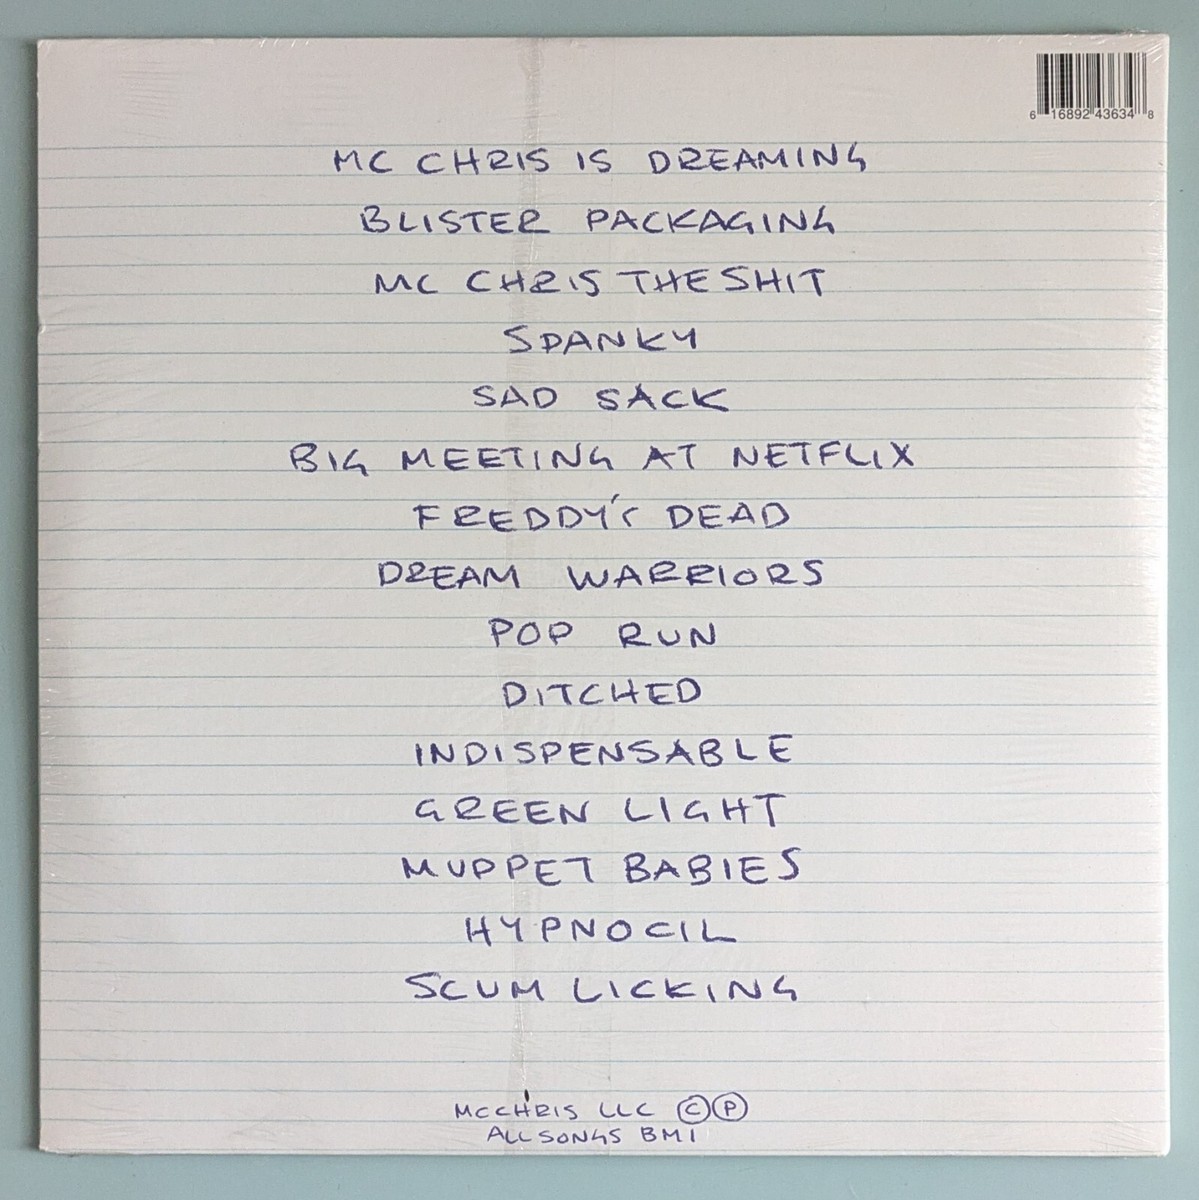 6 16892 43634 8
MC CHRIS IS DREAMING
BLISTER PACKAGING
MC CHRIS THE SHIT
SPANKY
SAD SACK
BIG MEETING AT NETFLIX
FREDDY'S DEAD
DREAM WARRIORS
POP RUN
DITCHED
INDISPENSABLE
GREEN LIGHT
MUPPET BABIES
HYPNOCIL
SCUM LICKING
MC CHRIS LLC © ℗
ALL SONGS BMI